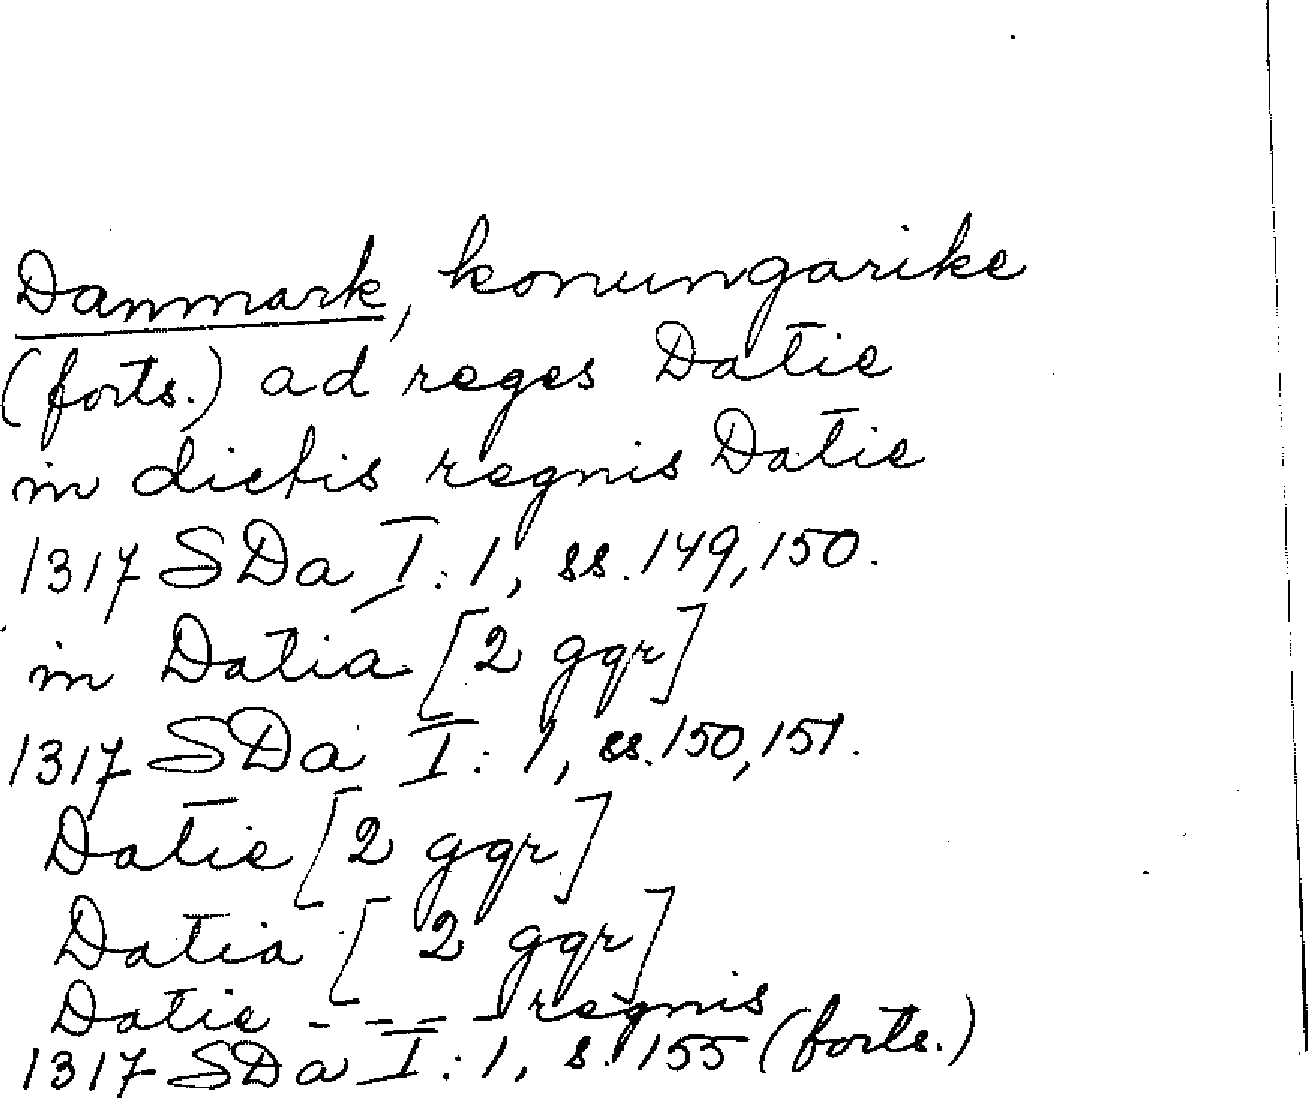 Danmark, konungarike
(forts.) ad reges Datie
in dictis regnis Datie
1317 SDa I:1, ss. 149, 150.
in Datia [2 ggr]
1317 SDa I:1, ss. 150, 151.
Datie [2 ggr]
Datia [2 ggr]
Datie - - - - regnis
1317 SDa I:1, s. 155 (forts.)